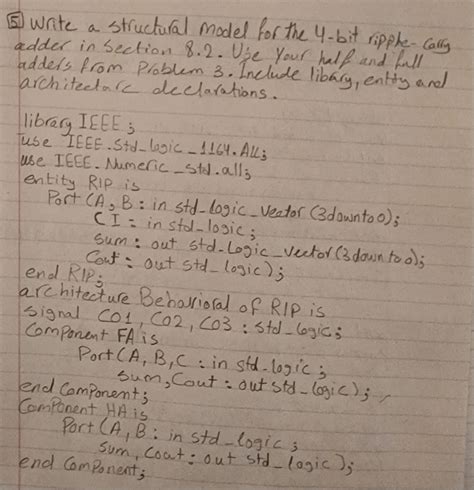 5 Write a structural model for the 4-bit ripple-carry
adder in Section 8.2. Use your half and full
adders from Problem 3. Include libary, entity and
architectare declarations.
library IEEE;
use IEEE.Std_logic_1164.ALL;
use IEEE.Numeric_std.all;
entity RIP is
Port (A, B: in std_logic_veator (3downto0);
CI = in std_logic;
sum: out std_Logic_vector(3downto0);
Cout: out std_logic);
end RIP;
architecture Behavioral of RIP is
signal CO1, CO2, CO3: std_logic;
Component FA is
Port (A, B, C: in std_logic;
Sum, Cout: out std_logic);
end Component;
Component HA is
Port (A, B: in std_logic;
Sum, Cout: out std_logic);
end Component;